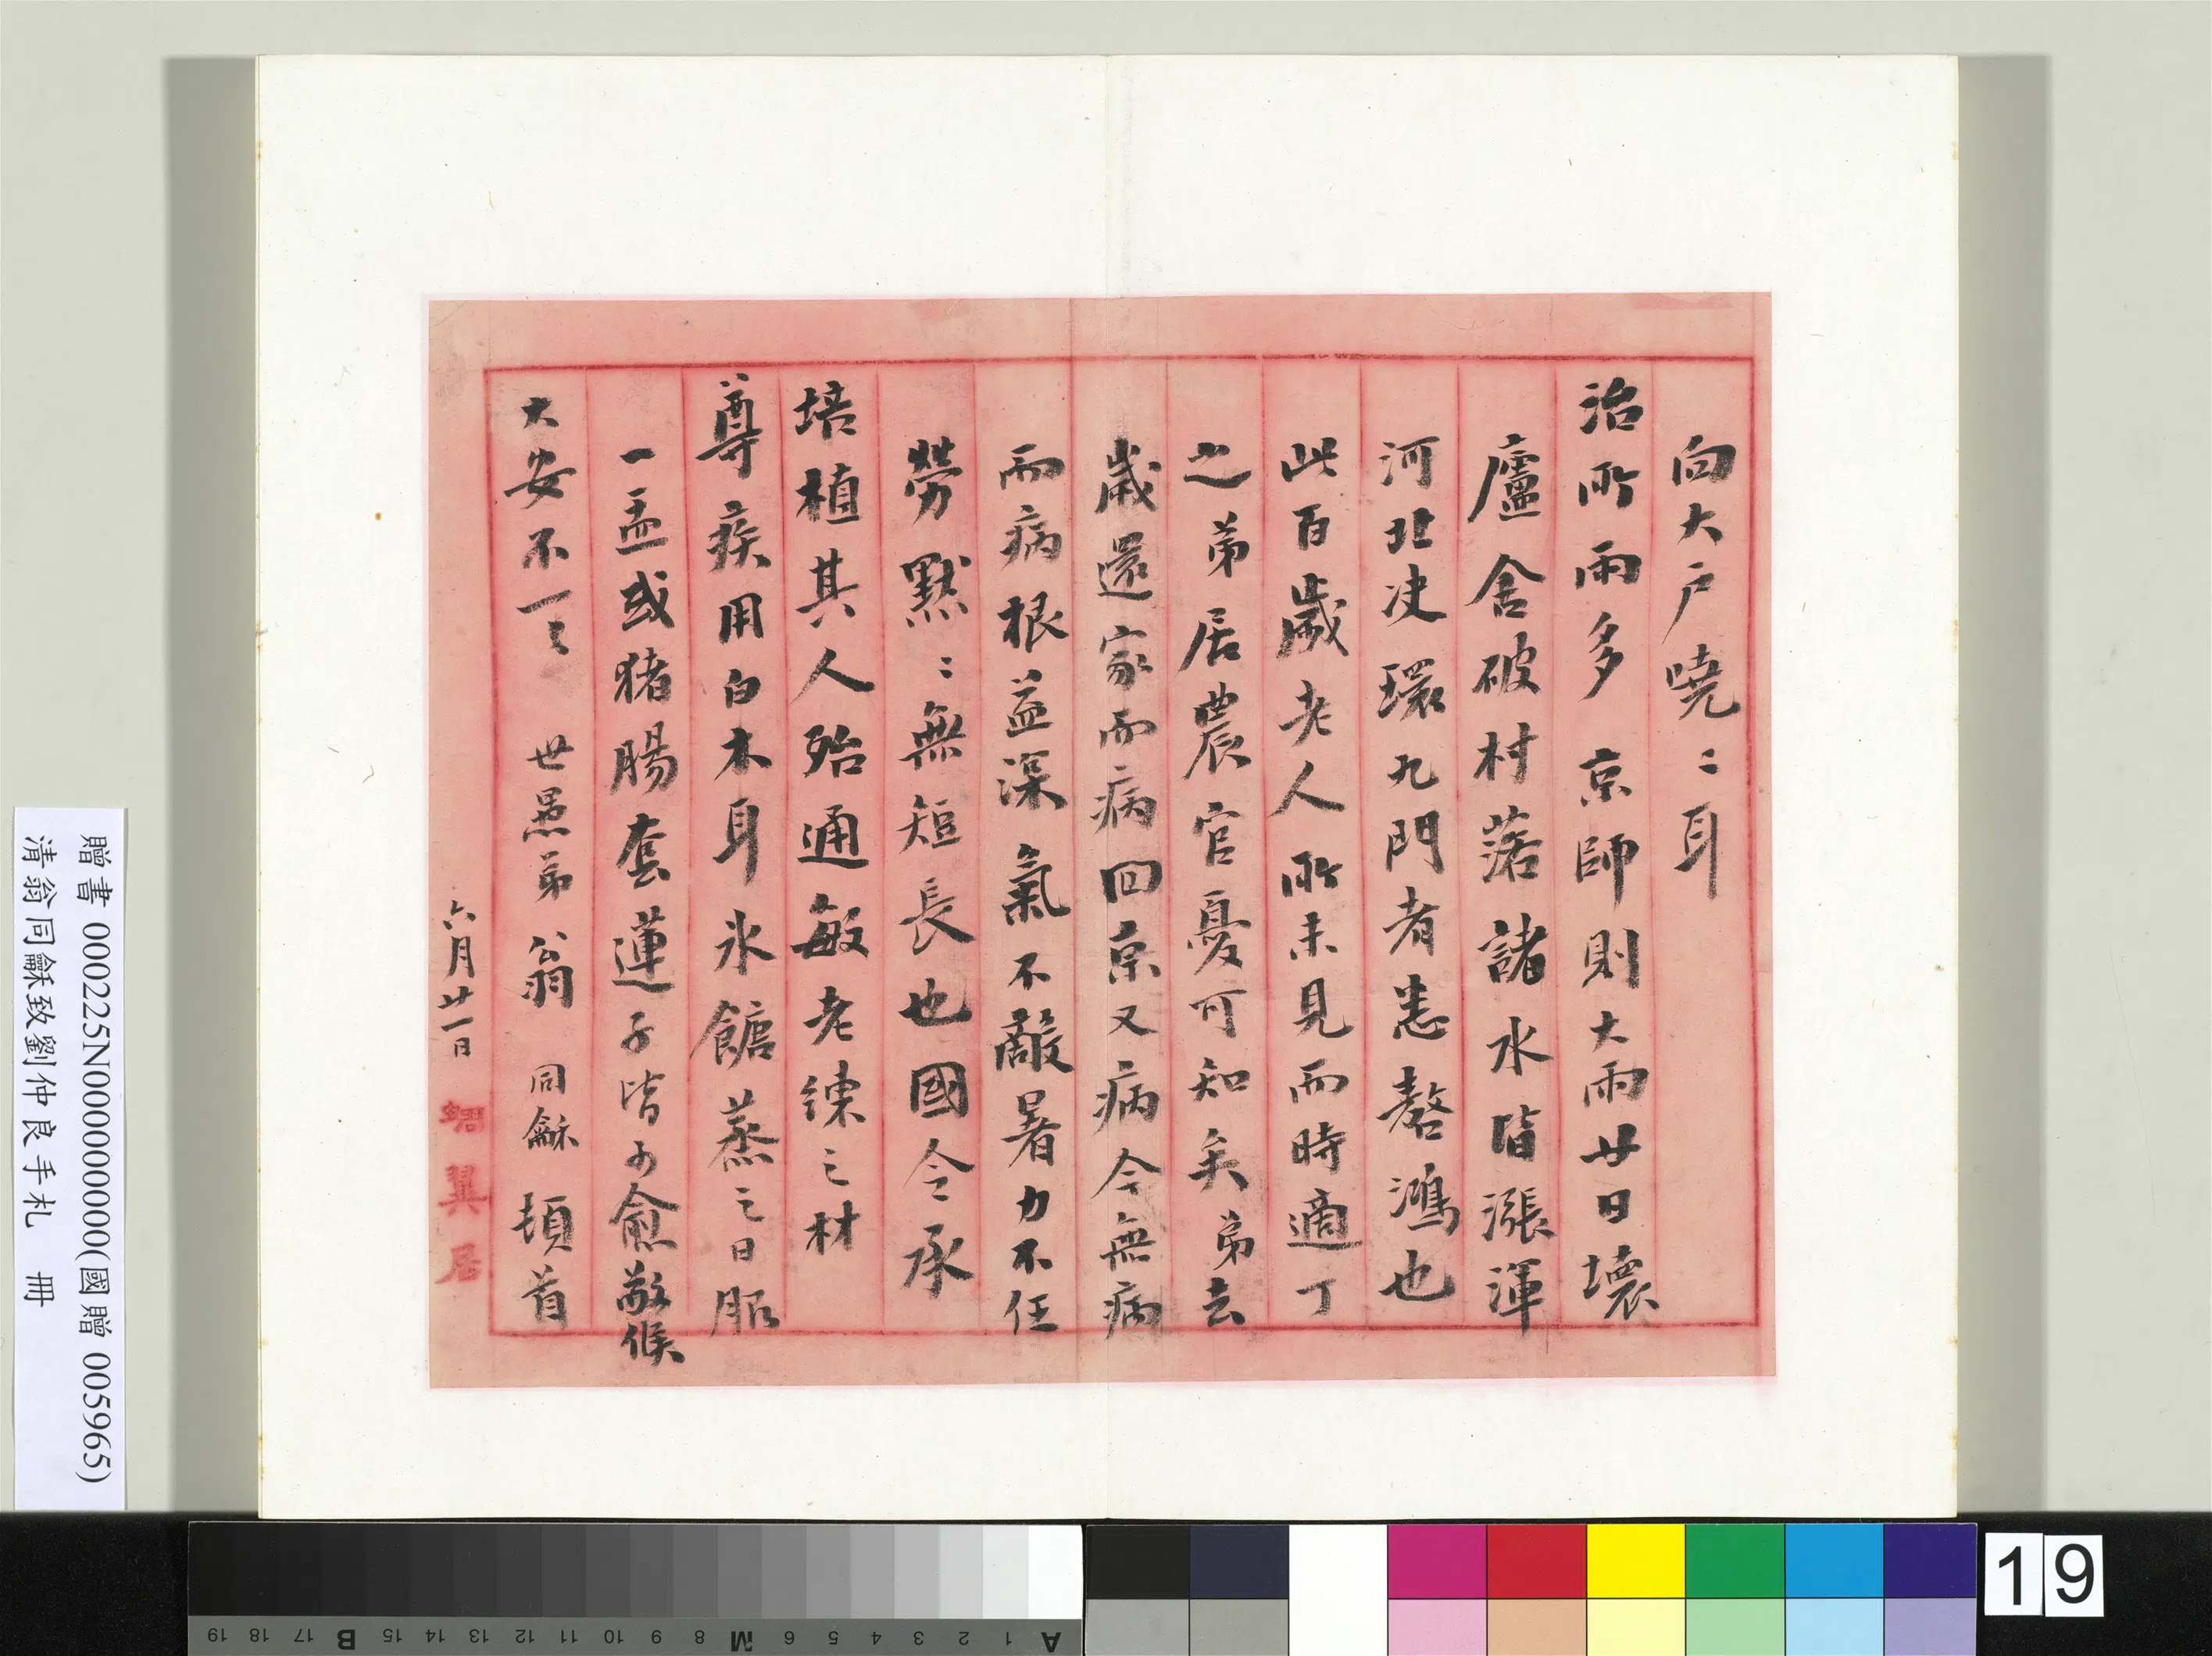 向大户嘵〻耳
治所雨多 京師則大雨廿日壞
廬舍破村落諸水皆漲渾
河北决環九門者悉嗸鴻也
此百歲老人所未見而時適丁
之弟居農官憂可知矣弟去
歲還家而病回京又病今無病
而病根益深氣不敵暑力不任
勞默〻無短長也國令承
培植其人殆通敏老練之材
尊疾用白木耳氷餹蒸之日服
一盂或猪腸套蓮子皆可愈敬候
大安不一〻 世愚弟翁同龢頓首
六月廿一日
翼居
贈書 000225N000000000(國贈 005965)
清翁同龢致劉仲良手札 冊
19
A 1 2 3 4 5 6 M 8 9 10 11 12 13 14 15 B 17 18 19